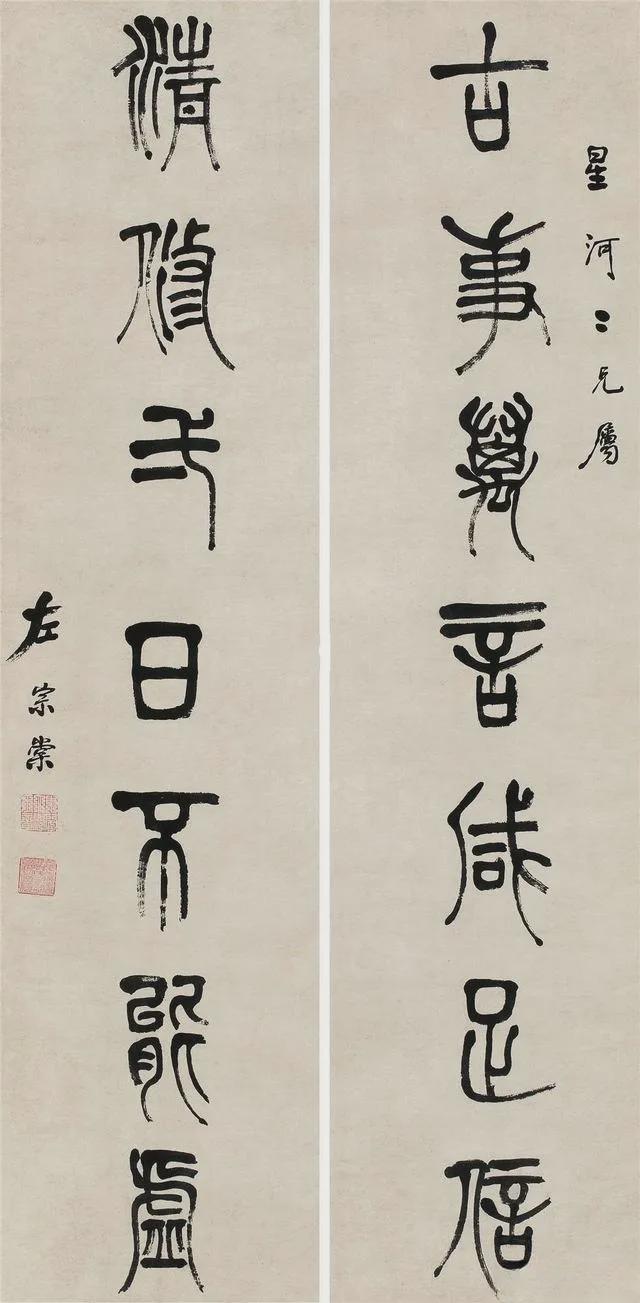 星河二兄屬
古事萬言咸足信
清修弌日不能虛
左宗棠